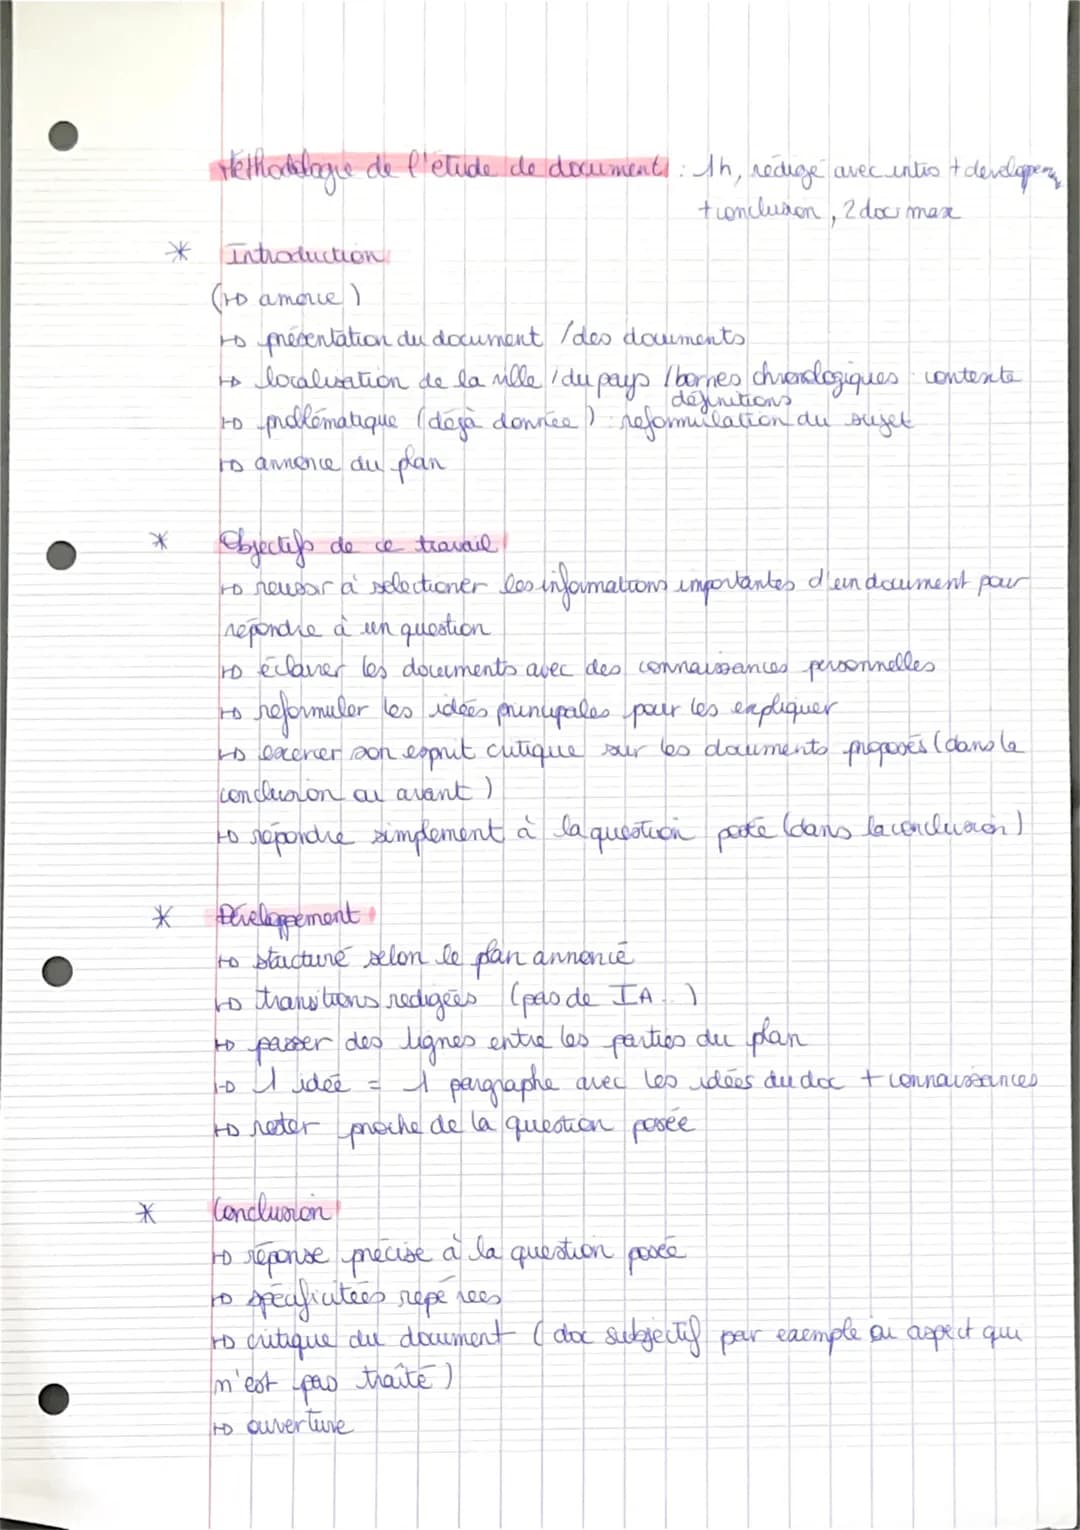 Méthodologie de l'étude de document : 1h, rédigé avec intro + developpem
+ conclusion, 2 doc max
* Introduction
(↦ amorce)
↦ présentation du document / des documents
↦ localisation de la ville / du pays / bornes chronologiques : contexte
définitions
↦ problématique (déjà donnée) : reformulation du sujet
↦ annonce du plan
* Objectifs de ce travail
↦ reussir à selectioner les informations importantes d'un document pour
répondre à un question
↦ éclairer les documents avec des connaissances personnelles
↦ reformuler les idées principales pour les expliquer
↦ exercer son esprit critique sur les documents proposés (dans la
conclusion ou avant)
↦ répondre simplement à la question posée (dans la conclusion)
* Développement
↦ stucturé selon le plan annoncé
↦ transitions redigées (pas de IA..)
↦ passer des lignes entre les parties du plan
↦ 1 idée = 1 pargraphe avec les idées du doc + connaissances
↦ reter proche de la question posée
* Conclusion
↦ réponse précise à la question posée
↦ spécificitées repérees
↦ critique du document (doc subjectif par exemple ou aspect qui
n'est pas traîté)
↦ ouverture